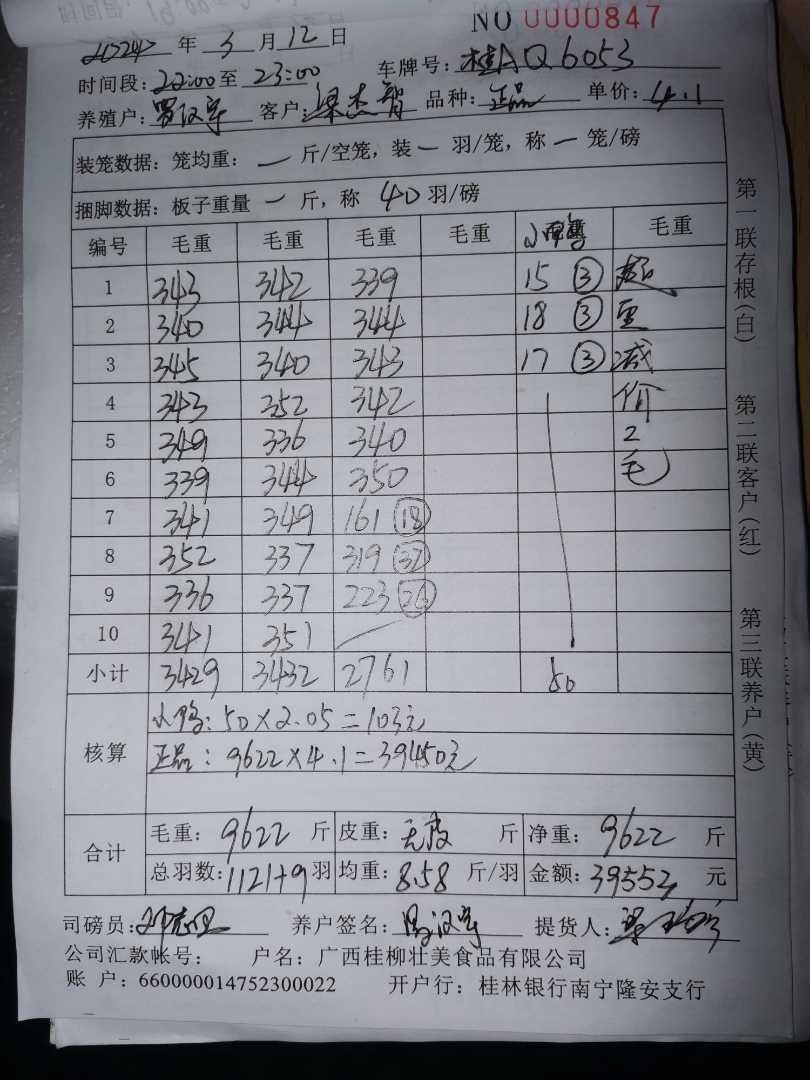 NO 0000847
2024 年 3 月 12 日
时间段: 22:00 至 23:00 车牌号: 桂AQ6053
养殖户: 罗汉宇 客户: 梁杰智 品种: 正品 单价: 4.1
装笼数据: 笼均重: 一 斤/空笼, 装 一 羽/笼, 称 一 笼/磅
捆脚数据: 板子重量 一 斤, 称 40 羽/磅
编号 毛重 毛重 毛重 毛重 小 毛重
1 343 342 339 15 ③ 超
2 340 344 344 18 ③ 重
3 345 340 343 17 ③ 减
4 343 352 342 价
5 349 336 340 2
6 339 344 350 毛
7 341 349 161 18
8 352 337 319 37
9 336 337 223 26
10 341 351
小计 3429 3432 2761 50
核算
小鸭: 50×2.05=103元
正品: 9622×4.1=39450元
合计
毛重: 9622 斤 皮重: 无皮 斤 净重: 9622 斤
总羽数: 1121+9 羽 均重: 8.58 斤/羽 金额: 39553 元
司磅员: 养户签名: 罗汉宇 提货人:
公司汇款帐号: 户名: 广西桂柳壮美食品有限公司
账 户: 660000014752300022 开户行: 桂林银行南宁隆安支行
第一联存根(白)
第二联客户(红)
第三联养户(黄)